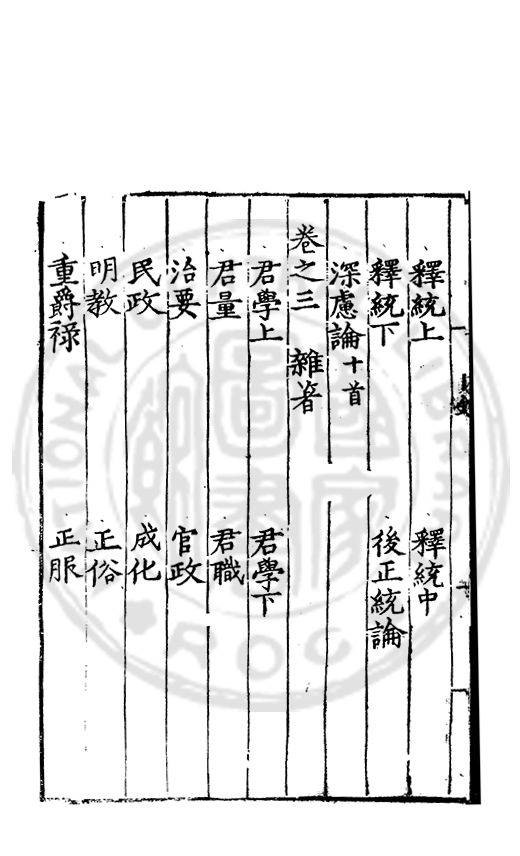 釋統上 釋統中
釋統下 後正統論
深慮論十首
卷之三 雜著
君學上 君學下
君量 君職
治要 官政
民政 成化
明教 正俗
重爵祿 正服